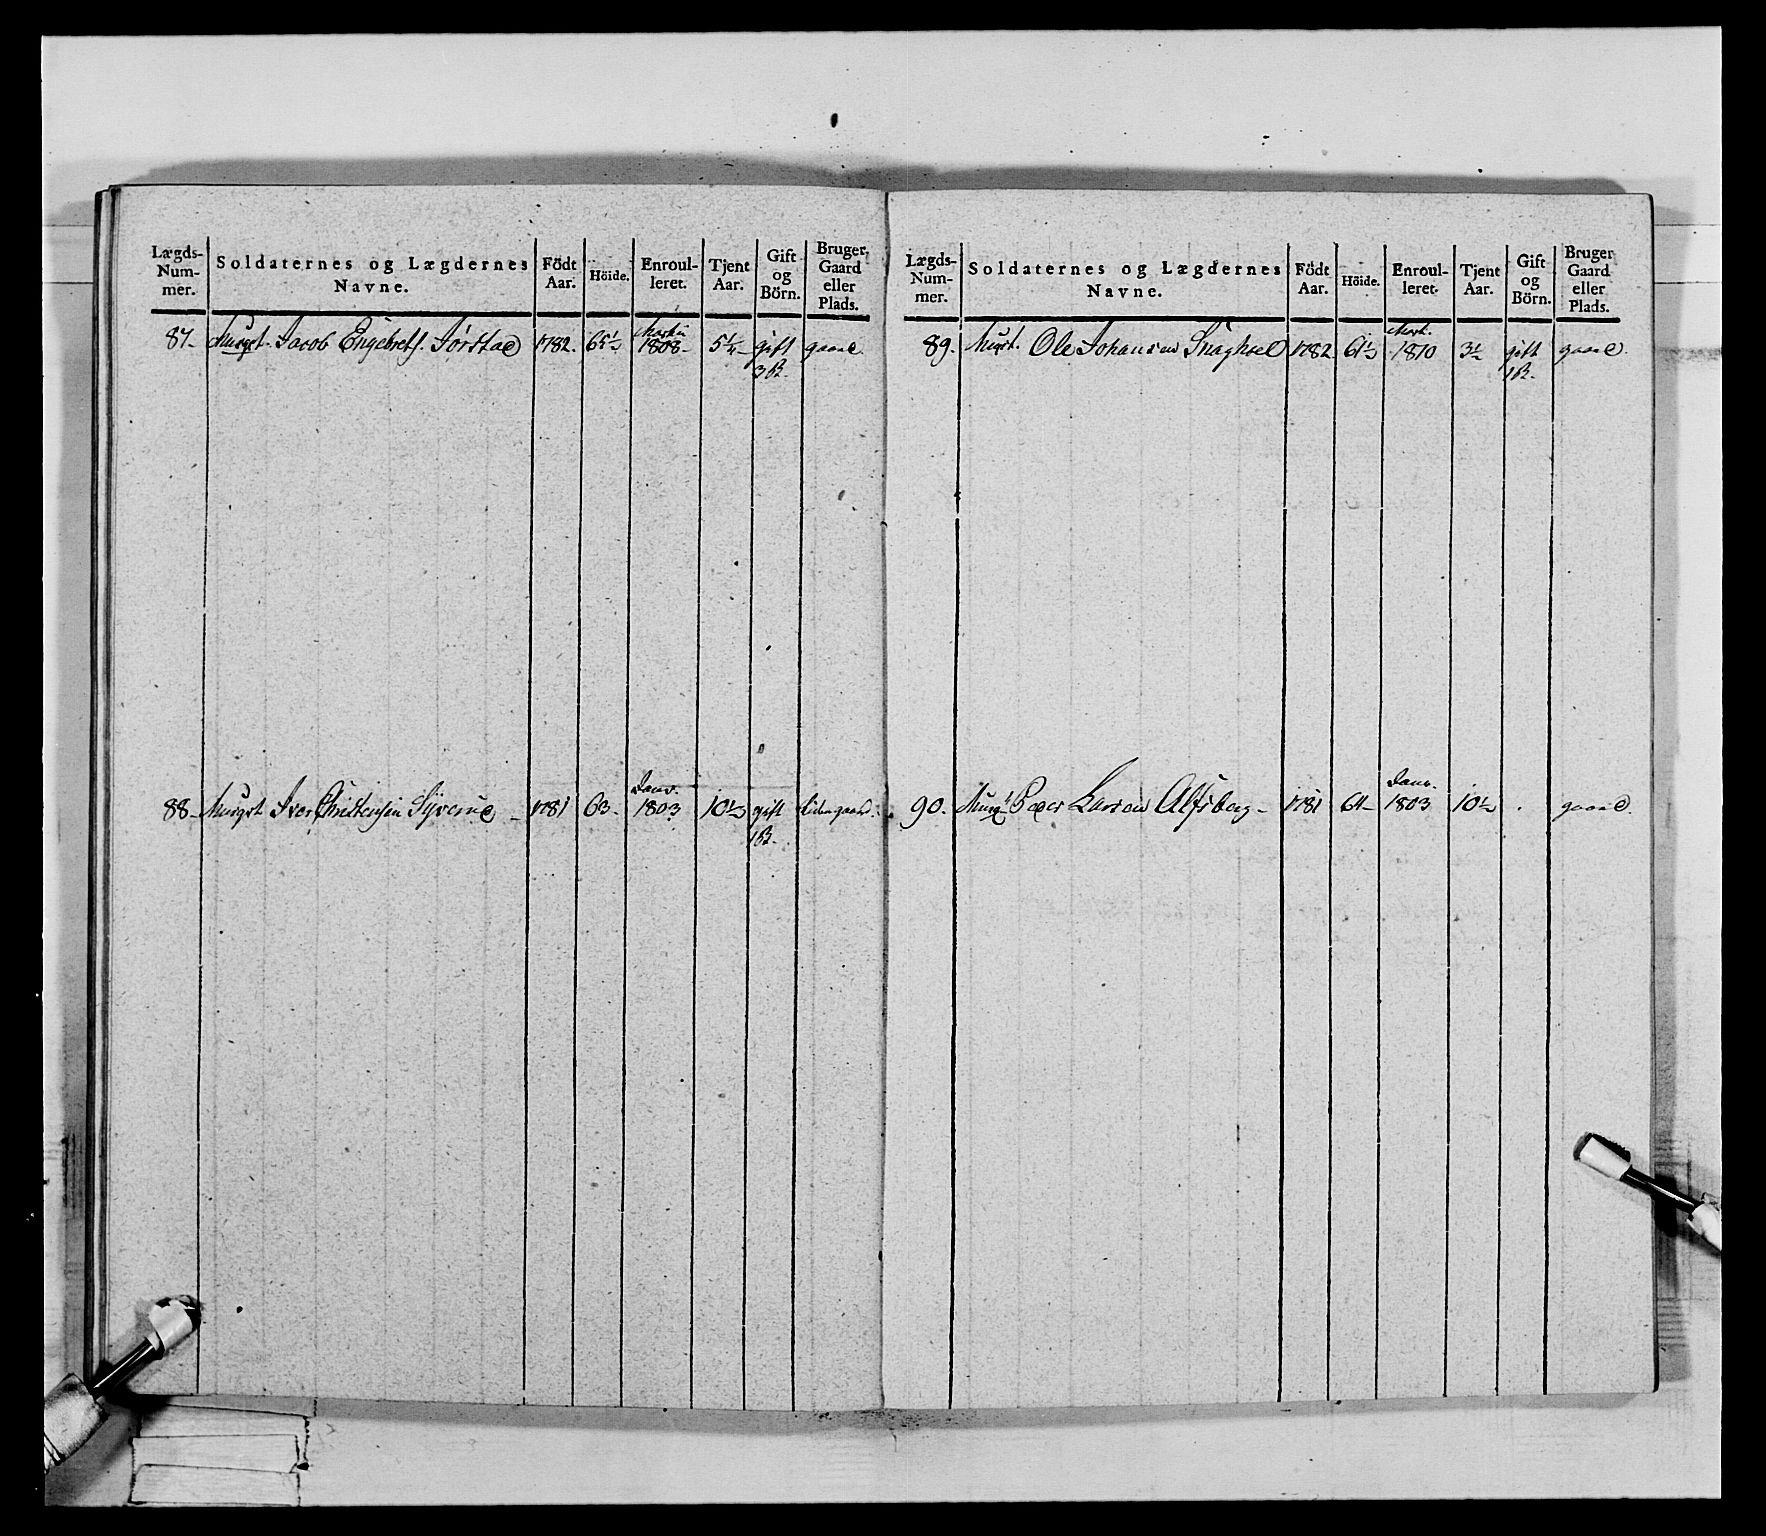 Lægds-Num-mer. Soldaternes og Lægdernes Navne. Födt Aar. Höide. Enroul-leret. Tjent Aar. Gift og Börn. Bruger Gaard eller Plads.
87- Musqt. Jacob Engebrets. Jørstad 1782. 65½ Martii 1808- 5¼- gift gaard.
3 B.
88- Musqt Iver Christensen - 1781 63- Janv. 1803 10½ gift
1 B.
Lægds-Num-mer. Soldaternes og Lægdernes Navne. Födt Aar. Höide. Enroul-leret. Tjent Aar. Gift og Börn. Bruger Gaard eller Plads.
89. Musqt. Ole Johansen 1782 61½ Mart. 1810 3½ gift gaard.
1 B.
90. Musqt Peder Larsen Alfsberg- 1781 Janv. 1803 10½ . gaard.